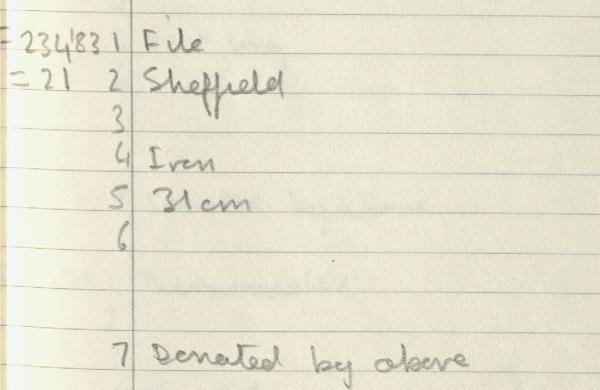 = 234'83 1 File
= 21 2 Sheffield
3
4 Iron
5 31cm
6
7 Donated by above